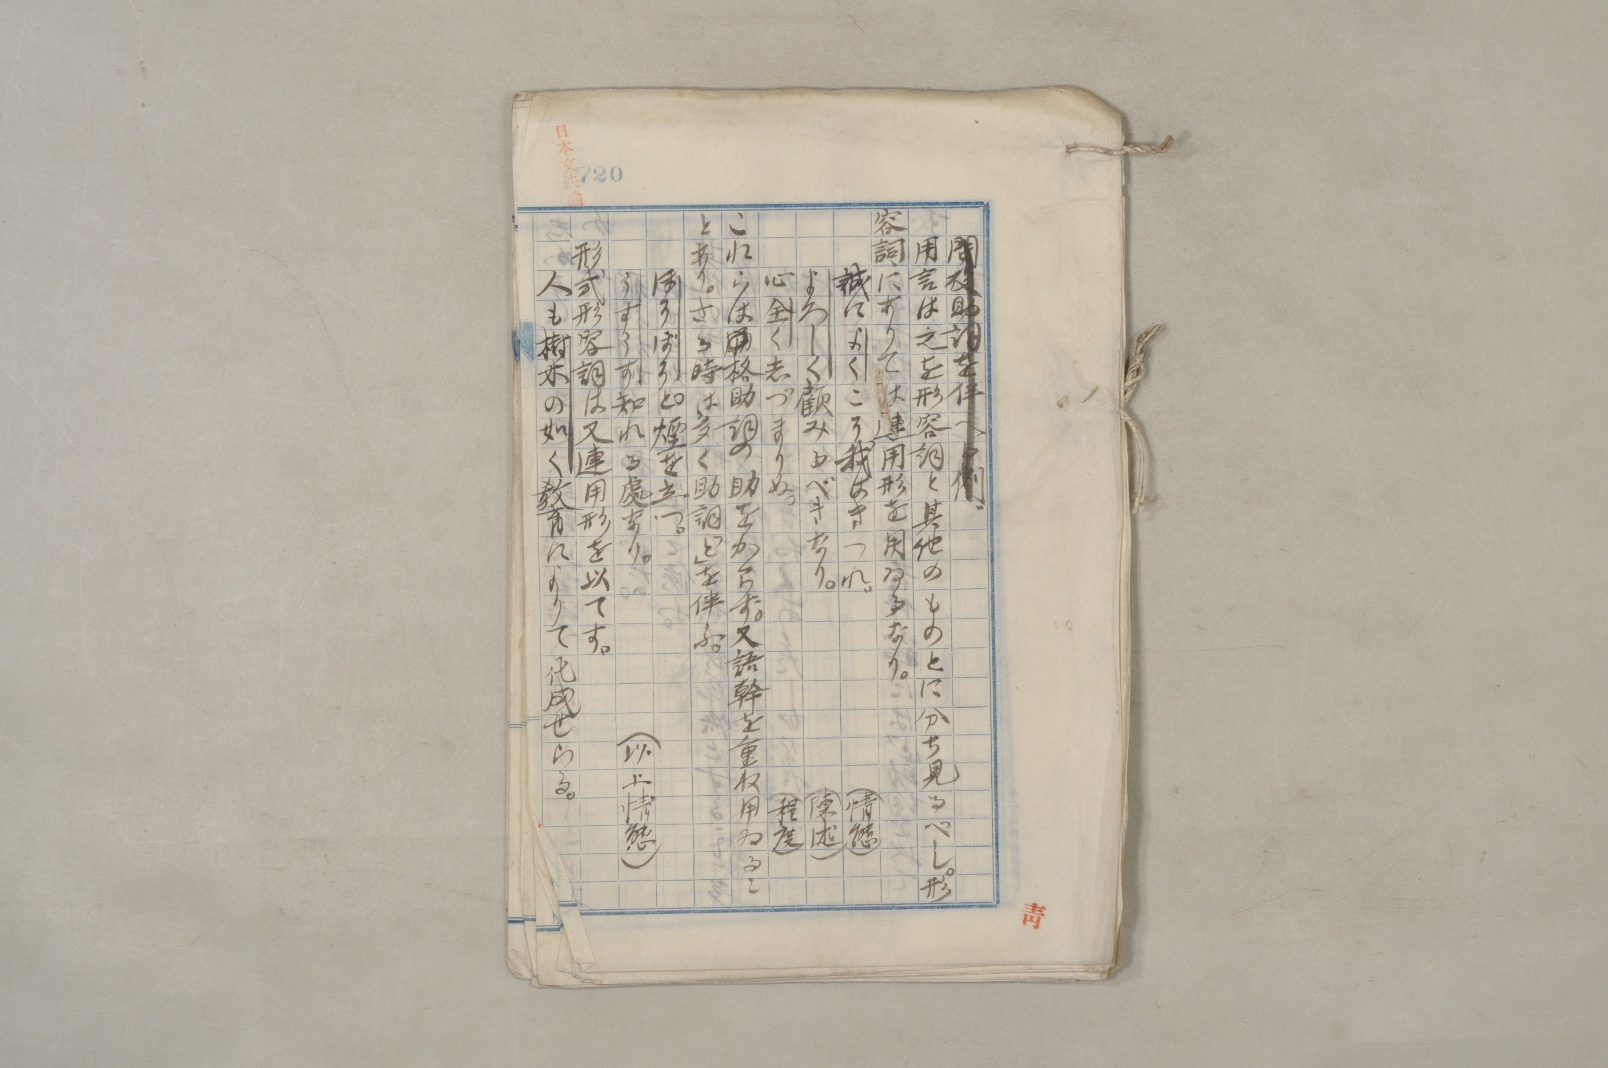 日本文法論
720
間投助詞を伴へる例、
用言は之を形容詞と其他のものとに分ち見るべし。形
容詞にありては連用形を用ゐるなり。
誠によくこそ我はきつれ。(情態)
よろしく顧みるべきなり。(陳述)
心全くしづまりぬ。(程度)
これらは格助詞の助をからず。又語幹を重ね用ゐるこ
とあり。さる時は多く助詞「と」を伴ふ。
ほそぼそと。煙を立つ。
うすうす知れる處あり。(以上情態)
形式形容詞は又連用形を以てす。
人も樹木の如く教育によりて化成せらる。
青